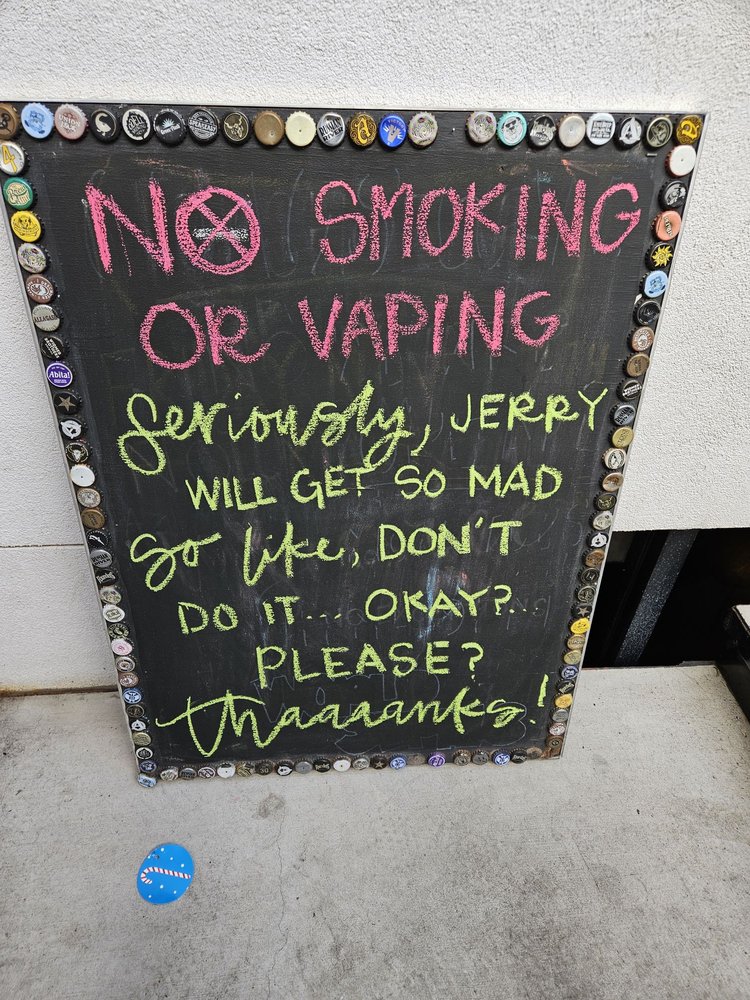 NO SMOKING
OR VAPING
Seriously, JERRY
WILL GET SO MAD
So like, DON'T
DO IT... OKAY?..
PLEASE?
thaaaanks!
Abita!